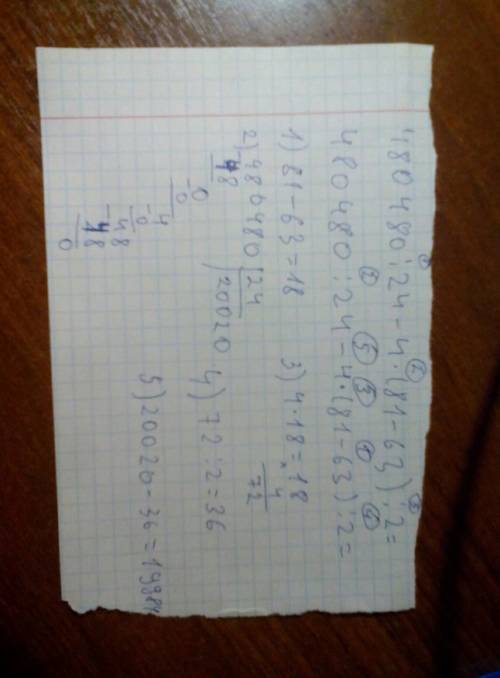 480 480:24-4·(81-63):2=
480 480:24-4·(81-63):2=
1) 81-63=18
3) 4·18=18
4
72
2) 480480 | 24
48
20020
0
0
4
0
48
48
0
4) 72:2=36
5) 20020-36=19984